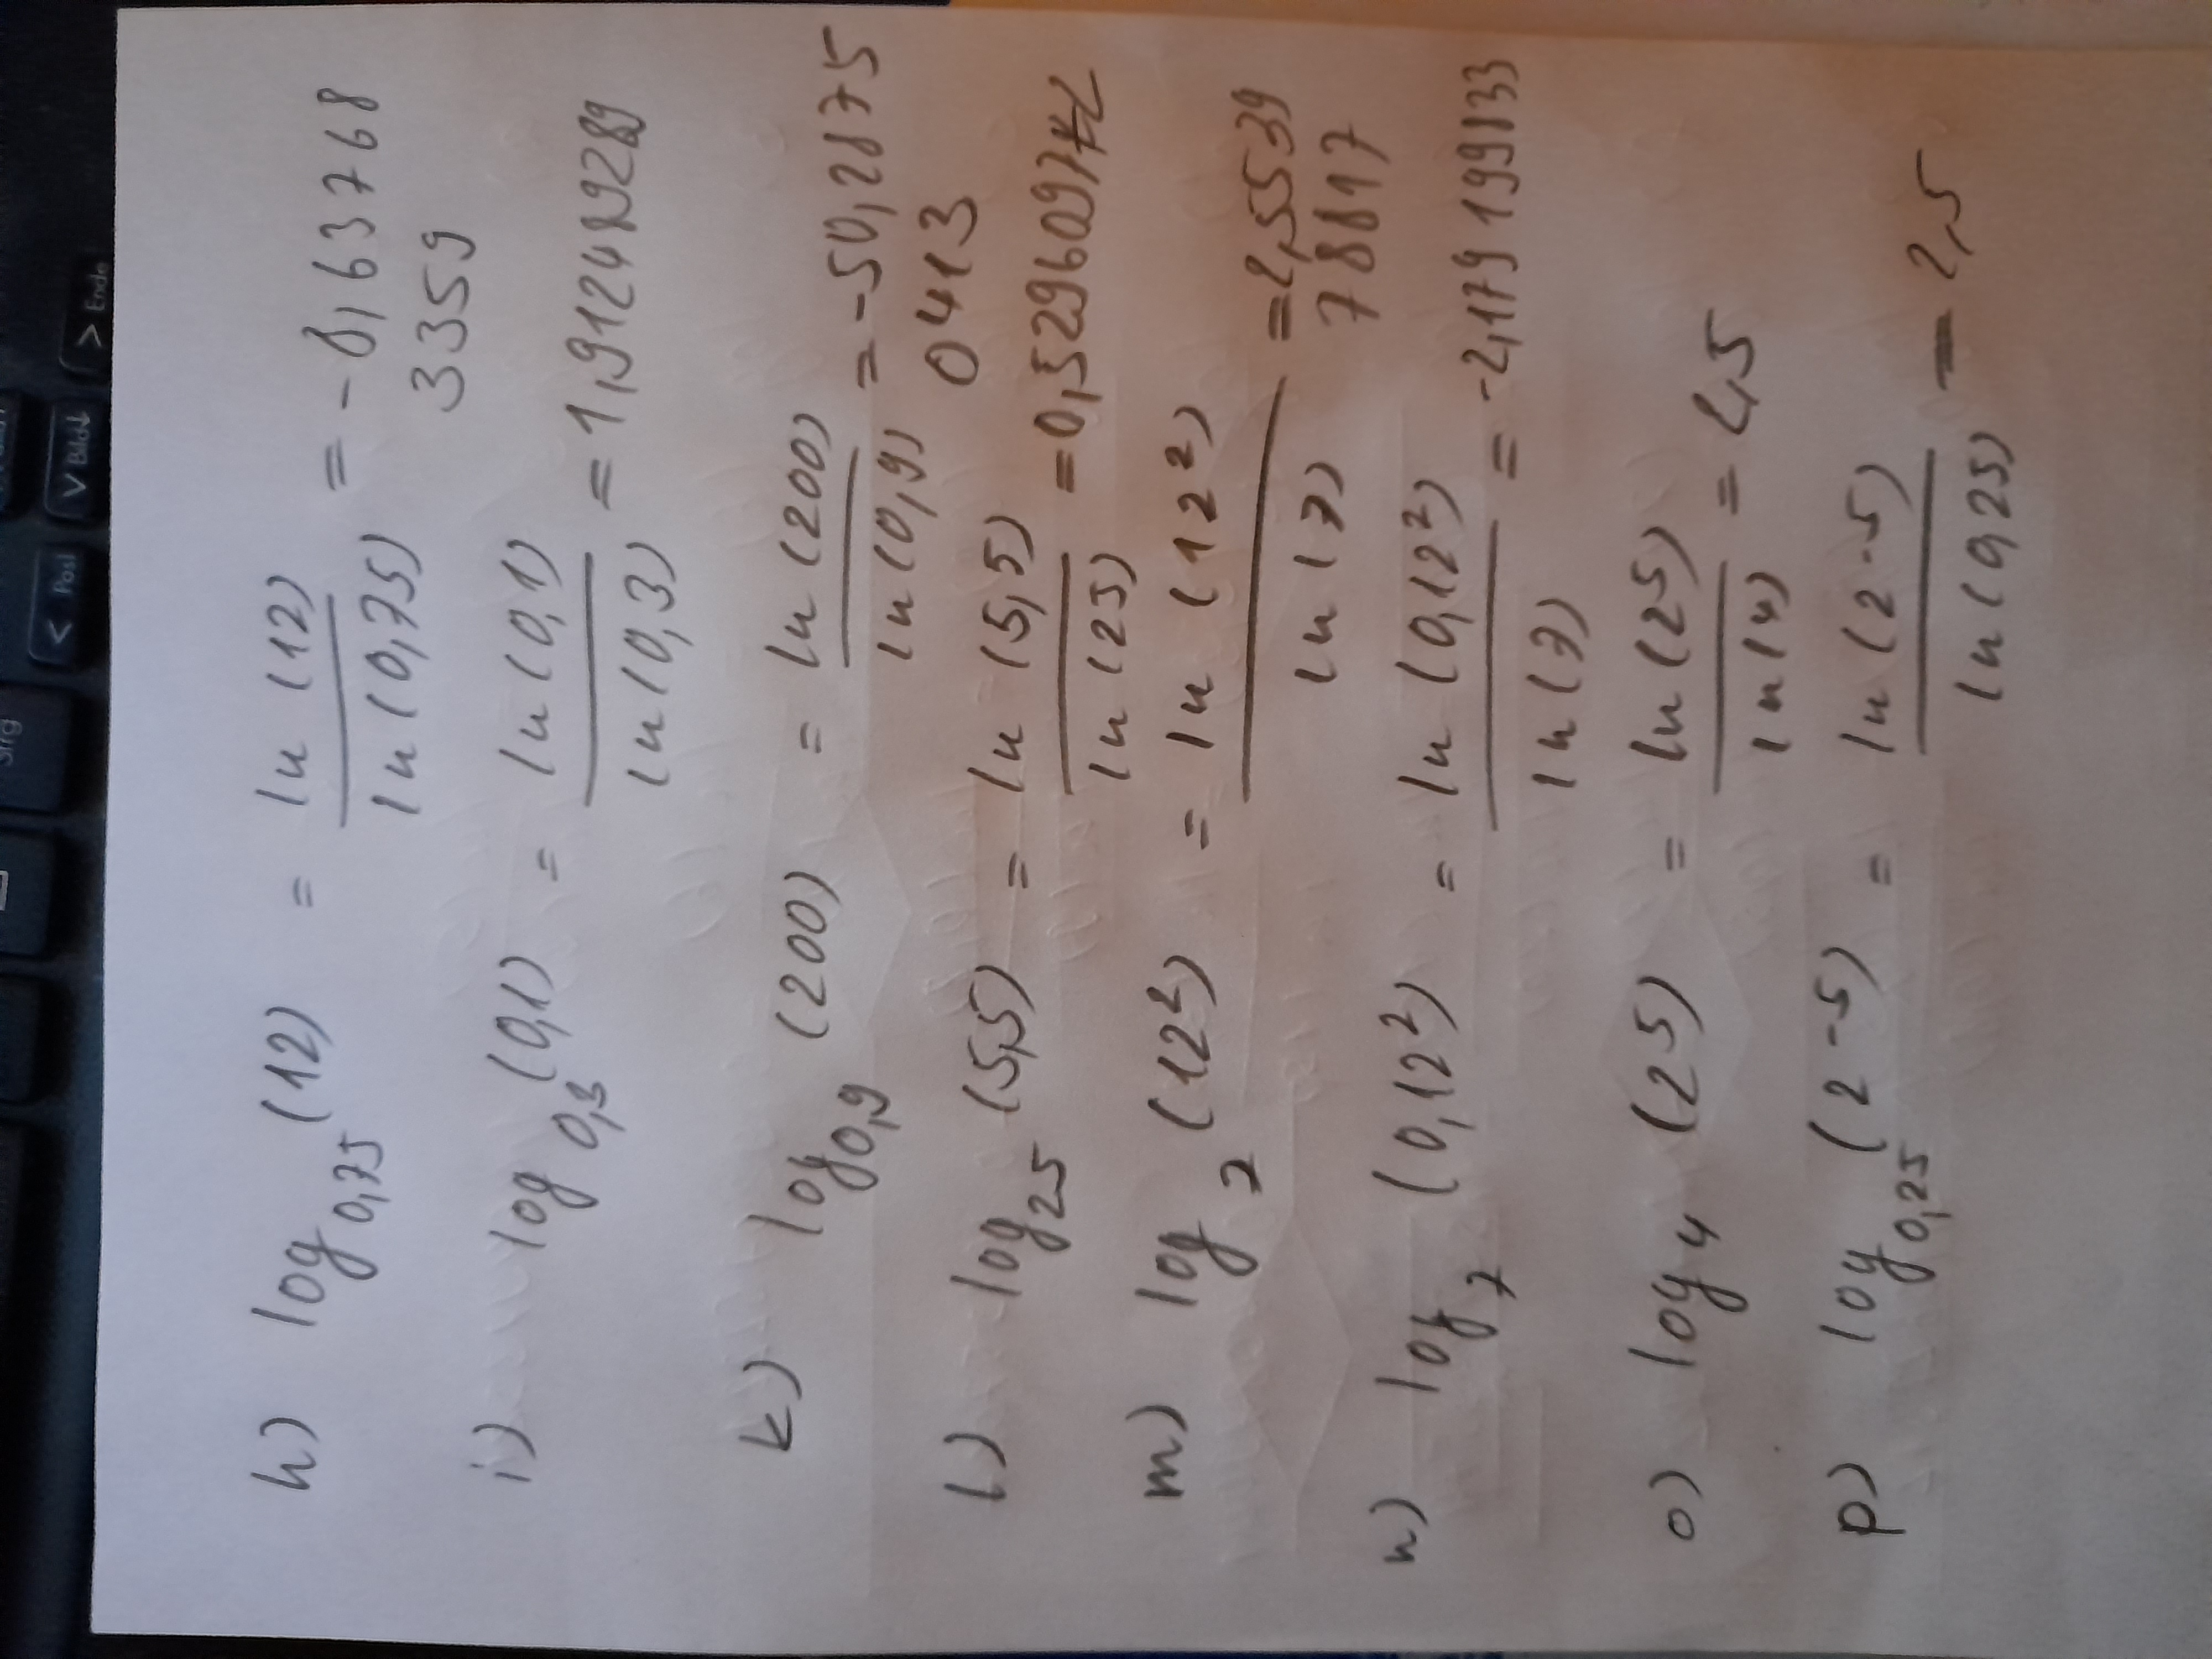 h) log 0,75 (12) = ln (12) / ln (0,75) = -8,637 68
3359
i) log 0,3 (0,1) = ln (0,1) / ln (0,3) = 1,912489289
k) log 0,9 (200) = ln (200) / ln (0,9) = -50,2875
0413
l) log 25 (5,5) = ln (5,5) / ln (25) = 0,5296097
m) log 7 (12²) = ln (12²) / ln (7) = 2,5539
78817
n) log 7 (0,12²) = ln (0,12²) / ln (7) = -2,179199133
o) log 4 (2⁵) = ln (2⁵) / ln (4) = 2,5
p) log 0,25 (2⁻⁵) = ln (2⁻⁵) / ln (0,25) = 2,5
Srg
< Pos1
V Bild↓
> Ende